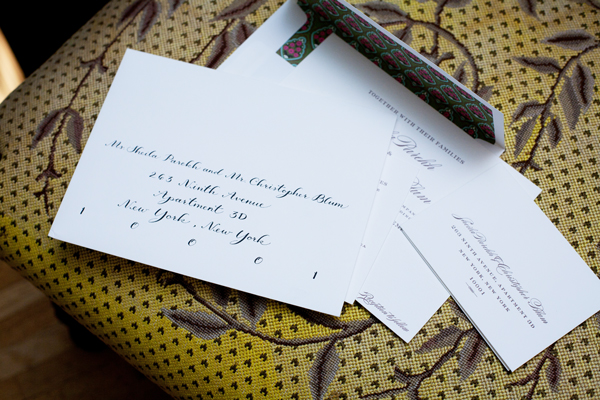 Ms. Sheila Parekh and Mr. Christopher Blum
263 Ninth Avenue
Apartment 3D
New York, New York
1 0 0 0 1
TOGETHER WITH THEIR FAMILIES
Parekh
Blum
Sheila Parekh & Christopher Blum
263 NINTH AVENUE, APARTMENT 3D
NEW YORK, NEW YORK
10001